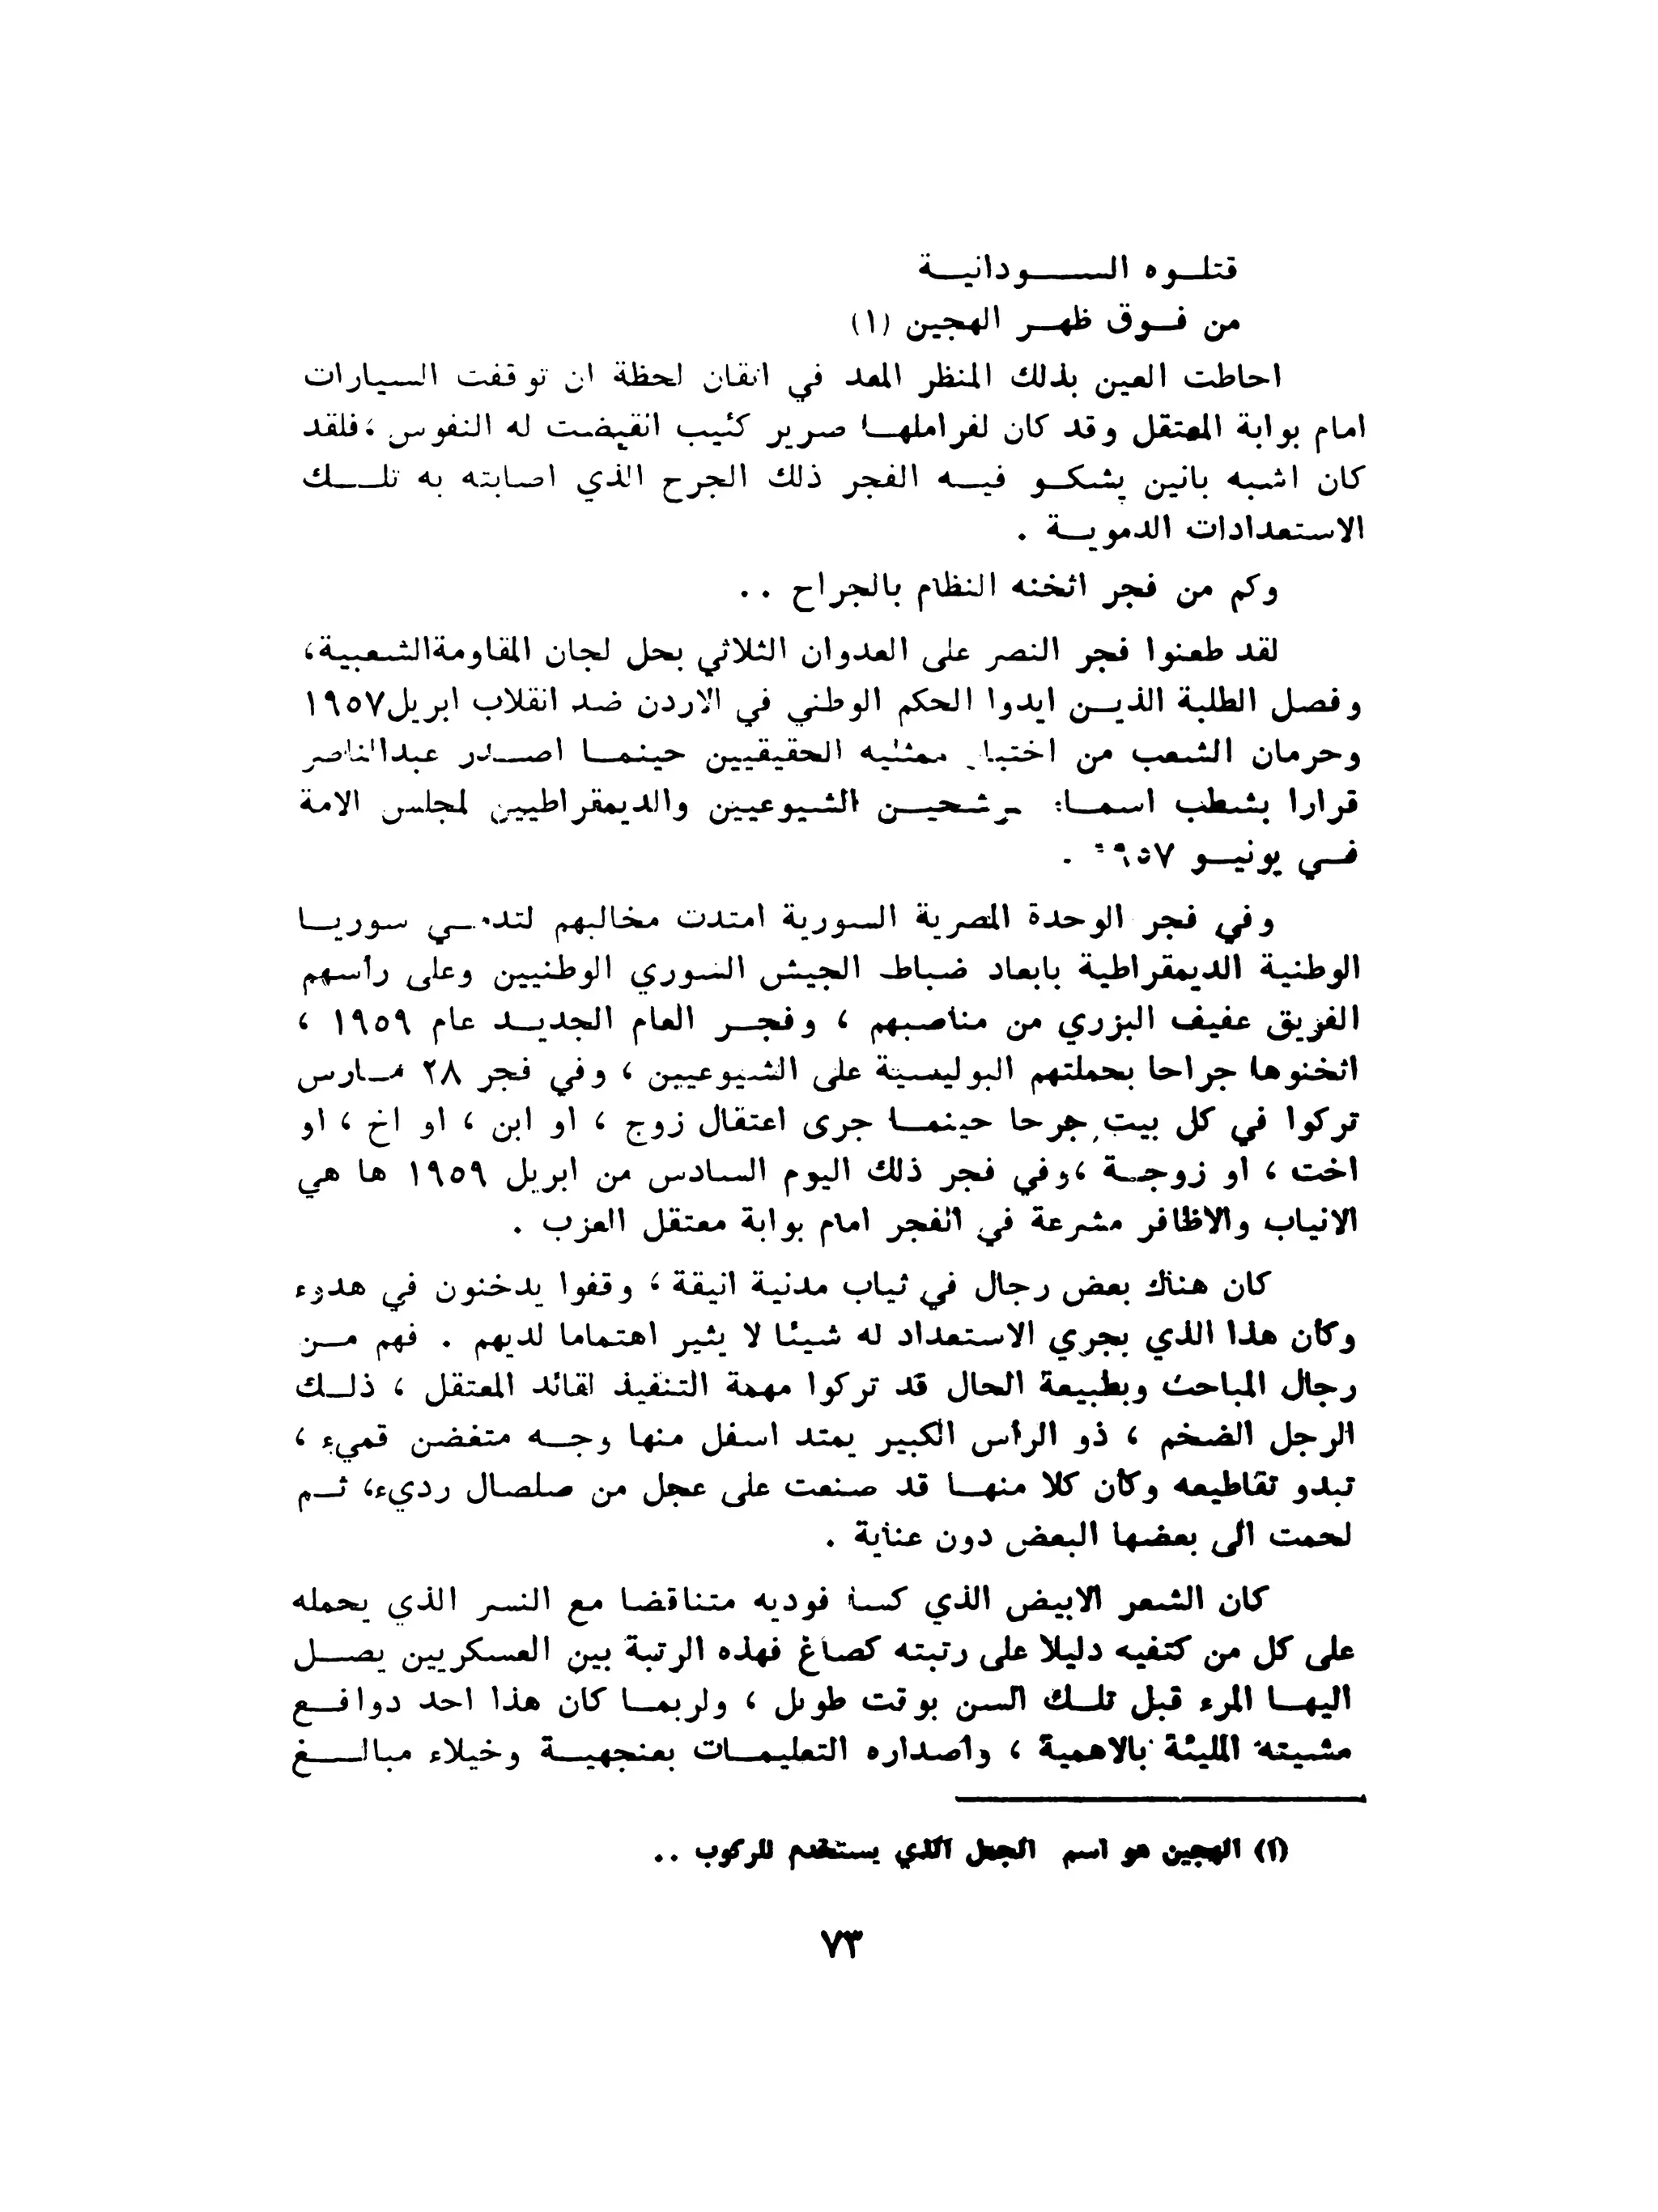 قتلوه السودانية
من فوق ظهر الهجين (١)
احاطت العين بذلك المنظر المعد في اتقان لحظة ان توقفت السيارات
امام بوابة المعتقل وقد كان لفراملها صرير كئيب انقبضت له النفوس ،فلقد
كان اشبه بانين يشكو فيه الفجر ذلك الجرح الذي اصابته به تلك
الاستعدادات الدموية .
وكم من فجر اثخنه النظام بالجراح ..
لقد طعنوا فجر النصر على العدوان الثلاثي بحل لجان المقاومةالشعبية،
وفصل الطلبة الذين ايدوا الحكم الوطني في الاردن ضد انقلاب ابريل١٩٥٧
وحرمان الشعب من اختيار ممثليه الحقيقيين حينما اصدر عبدالناصر
قرارا بشطب اسماء مرشحين الشيوعيين والديمقراطيين لمجلس الامة
في يونيو ١٩٥٧ .
وفي فجر الوحدة المصرية السورية امتدت مخالبهم لتدمي سوريا
الوطنية الديمقراطية بابعاد ضباط الجيش السوري الوطنيين وعلى رأسهم
الفريق عفيف البزري من مناصبهم ، وفجر العام الجديد عام ١٩٥٩ ،
اثخنوها جراحا بحملتهم البوليسية على الشيوعيين ، وفي فجر ٢٨ مارس
تركوا في كل بيت جرحا حينما جرى اعتقال زوج ، او ابن ، او اخ ، او
اخت ، او زوجة ،وفي فجر ذلك اليوم السادس من ابريل ١٩٥٩ ها هي
الانياب والاظافر مشرعة في الفجر امام بوابة معتقل العزب .
كان هناك بعض رجال في ثياب مدنية انيقة ، وقفوا يدخنون في هدوء
وكأن هذا الذي يجري الاستعداد له شيئا لا يثير اهتماما لديهم . فهم من
رجال المباحث وبطبيعة الحال قد تركوا مهمة التنفيذ لقائد المعتقل ، ذلك
الرجل الضخم ، ذو الرأس الكبير يمتد اسفل منها وجه متغضن قميء ،
تبدو تقاطيعه وكأن كلا منها قد صنعت على عجل من صلصال رديء، ثم
لحمت الى بعضها البعض دون عناية .
كان الشعر الابيض الذي كسا فوديه متناقضا مع النسر الذي يحمله
على كل من كتفيه دليلا على رتبته كصاغ فهذه الرتبة بين العسكريين يصل
اليها المرء قبل تلك السن بوقت طويل ، ولربما كان هذا احد دوافع
مشيته المليئة بالاهمية ، واصداره التعليمات بعنجهية وخيلاء مبالغ
(١) الهجين هو اسم الجمل الذي يستخدم للركوب ..
٧٣